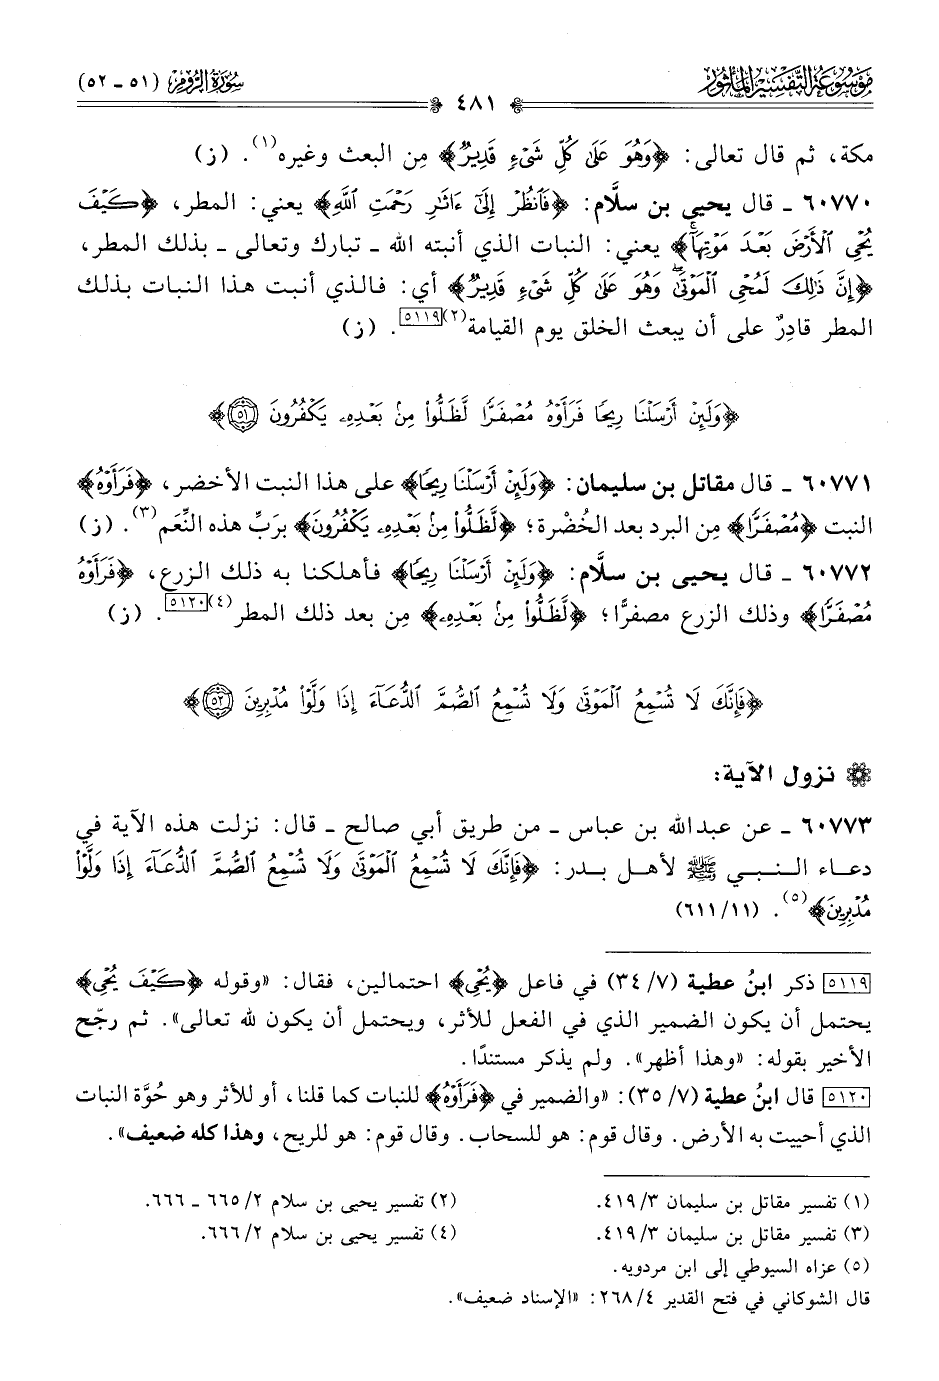 مَوْسُوعَةُ التَّفْسِيرِ المَأْثُورِ
٤٨١
سُورَةُ الرُّومِ (٥١ - ٥٢)
مكة، ثم قال تعالى: ﴿وَهُوَ عَلَىٰ كُلِّ شَىْءٍ قَدِيرٌ﴾ مِن البعث وغيره(١). (ز)
٦٠٧٧٠ - قال يحيى بن سلَّام: ﴿فَٱنظُرْ إِلَىٰٓ ءَاثَٰرِ رَحْمَتِ ٱللَّهِ﴾ يعني: المطر، ﴿كَيْفَ
يُحْىِ ٱلْأَرْضَ بَعْدَ مَوْتِهَآ﴾ يعني: النبات الذي أنبته الله - تبارك وتعالى - بذلك المطر،
﴿إِنَّ ذَٰلِكَ لَمُحْىِ ٱلْمَوْتَىٰ وَهُوَ عَلَىٰ كُلِّ شَىْءٍ قَدِيرٌ﴾ أي: فالذي أنبت هذا النبات بذلك
المطر قادِرٌ على أن يبعث الخلق يوم القيامة(٢)[٥١١٩]. (ز)
﴿وَلَئِنْ أَرْسَلْنَا رِيحًا فَرَأَوْهُ مُصْفَرًّا لَّظَلُّوا۟ مِنۢ بَعْدِهِۦ يَكْفُرُونَ ۝٥١﴾
٦٠٧٧١ - قال مقاتل بن سليمان: ﴿وَلَئِنْ أَرْسَلْنَا رِيحًا﴾ على هذا النبت الأخضر، ﴿فَرَأَوْهُ﴾
النبت ﴿مُصْفَرًّا﴾ مِن البرد بعد الخُضْرة؛ ﴿لَّظَلُّوا۟ مِنۢ بَعْدِهِۦ يَكْفُرُونَ﴾ برَبِّ هذه النِّعَم(٣). (ز)
٦٠٧٧٢ - قال يحيى بن سلَّام: ﴿وَلَئِنْ أَرْسَلْنَا رِيحًا﴾ فأهلكنا به ذلك الزرع، ﴿فَرَأَوْهُ
مُصْفَرًّا﴾ وذلك الزرع مصفرًّا؛ ﴿لَّظَلُّوا۟ مِنۢ بَعْدِهِۦ﴾ مِن بعد ذلك المطر(٤)[٥١٢٠]. (ز)
﴿فَإِنَّكَ لَا تُسْمِعُ ٱلْمَوْتَىٰ وَلَا تُسْمِعُ ٱلصُّمَّ ٱلدُّعَآءَ إِذَا وَلَّوْا۟ مُدْبِرِينَ ۝٥٢﴾
نزول الآية:
٦٠٧٧٣ - عن عبدالله بن عباس - من طريق أبي صالح - قال: نزلت هذه الآية في
دعاء النبي ﷺ لأهل بدر: ﴿فَإِنَّكَ لَا تُسْمِعُ ٱلْمَوْتَىٰ وَلَا تُسْمِعُ ٱلصُّمَّ ٱلدُّعَآءَ إِذَا وَلَّوْا۟
مُدْبِرِينَ﴾(٥). (٦١١/١١)
[٥١١٩] ذكر ابنُ عطية (٣٤/٧) في فاعل ﴿يُحْىِ﴾ احتمالين، فقال: «وقوله ﴿كَيْفَ يُحْىِ﴾
يحتمل أن يكون الضمير الذي في الفعل للأثر، ويحتمل أن يكون لله تعالى». ثم رجّح
الأخير بقوله: «وهذا أظهر». ولم يذكر مستندًا.
[٥١٢٠] قال ابنُ عطية (٣٥/٧): «والضمير في ﴿فَرَأَوْهُ﴾ للنبات كما قلنا، أو للأثر وهو حُوَّة النبات
الذي أحييت به الأرض. وقال قوم: هو للسحاب. وقال قوم: هو للريح، وهذا كله ضعيف».
(١) تفسير مقاتل بن سليمان ٤١٩/٣.
(٢) تفسير يحيى بن سلام ٦٦٥/٢ - ٦٦٦.
(٣) تفسير مقاتل بن سليمان ٤١٩/٣.
(٤) تفسير يحيى بن سلام ٦٦٦/٢.
(٥) عزاه السيوطي إلى ابن مردويه.
قال الشوكاني في فتح القدير ٢٦٨/٤: «الإسناد ضعيف».